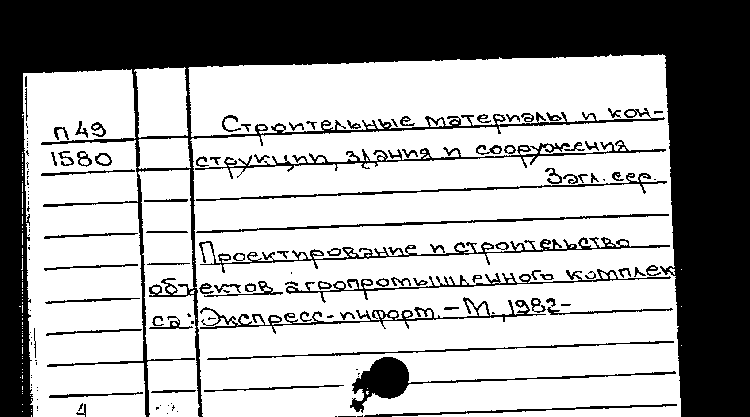 П49
1580
Строительные материалы и кон-
струкции, здания и сооружения
Загл. сер.
Проектирование и строительство
объектов агропромышленного комплек
са: Экспресс-информ. – М., 1982-
4